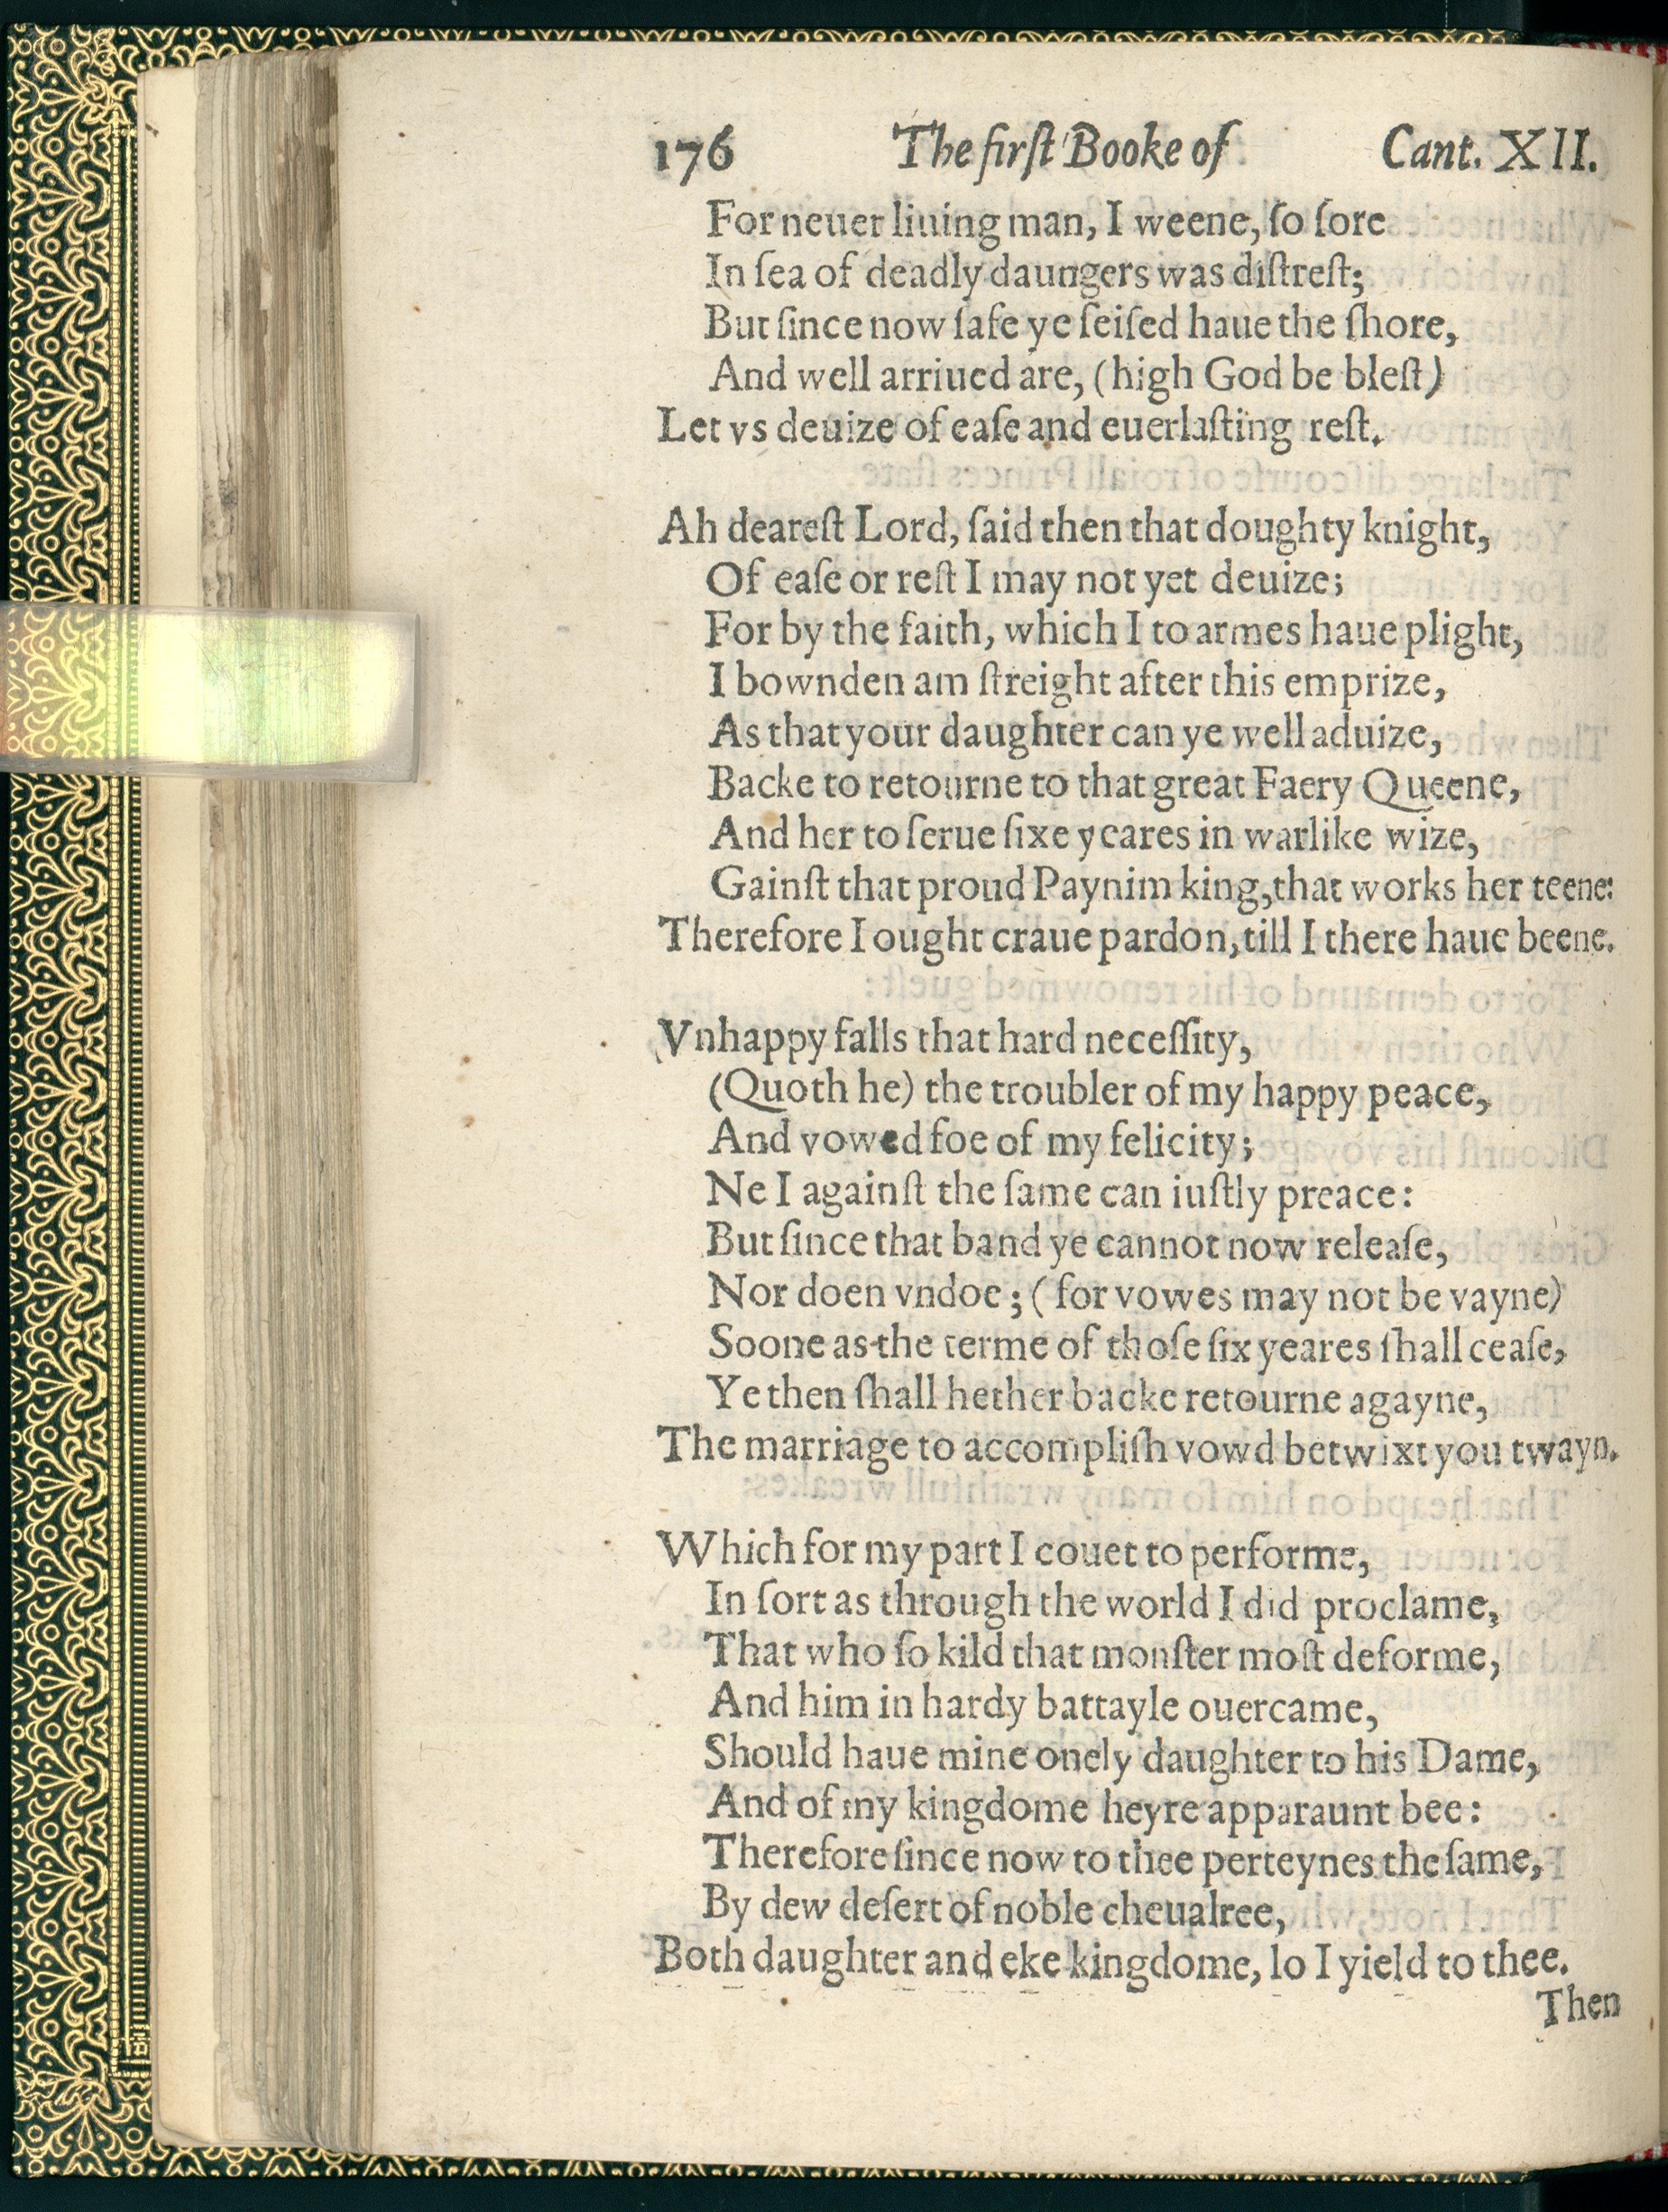 176 The firſt Booke of Cant. XII.
For neuer liuing man, I weene, ſo ſore
In ſea of deadly daungers was diſtreſt;
But ſince now ſafe ye ſeiſed haue the ſhore,
And well arriued are, (high God be bleſt)
Let vs deuize of eaſe and euerlaſting reſt.
Ah deareſt Lord, ſaid then that doughty knight,
Of eaſe or reſt I may not yet deuize;
For by the faith, which I to armes haue plight,
I bownden am ſtreight after this emprize,
As that your daughter can ye well aduize,
Backe to retourne to that great Faery Queene,
And her to ſerue ſixe yeares in warlike wize,
Gainſt that proud Paynim king, that works her teene:
Therefore I ought craue pardon, till I there haue beene.
Vnhappy falls that hard neceſſity,
(Quoth he) the troubler of my happy peace,
And vowed foe of my felicity;
Ne I againſt the ſame can iuſtly preace:
But ſince that band ye cannot now releaſe,
Nor doen vndoe; (for vowes may not be vayne)
Soone as the terme of thoſe ſix yeares ſhall ceaſe,
Ye then ſhall hether backe retourne agayne,
The marriage to accompliſh vowd betwixt you twayn.
Which for my part I couet to performe,
In ſort as through the world I did proclame,
That who ſo kild that monſter moſt deforme,
And him in hardy battayle ouercame,
Should haue mine onely daughter to his Dame,
And of my kingdome heyre apparaunt bee:
Therefore ſince now to thee perteynes the ſame,
By dew deſert of noble cheualree,
Both daughter and eke kingdome, lo I yield to thee.
Then